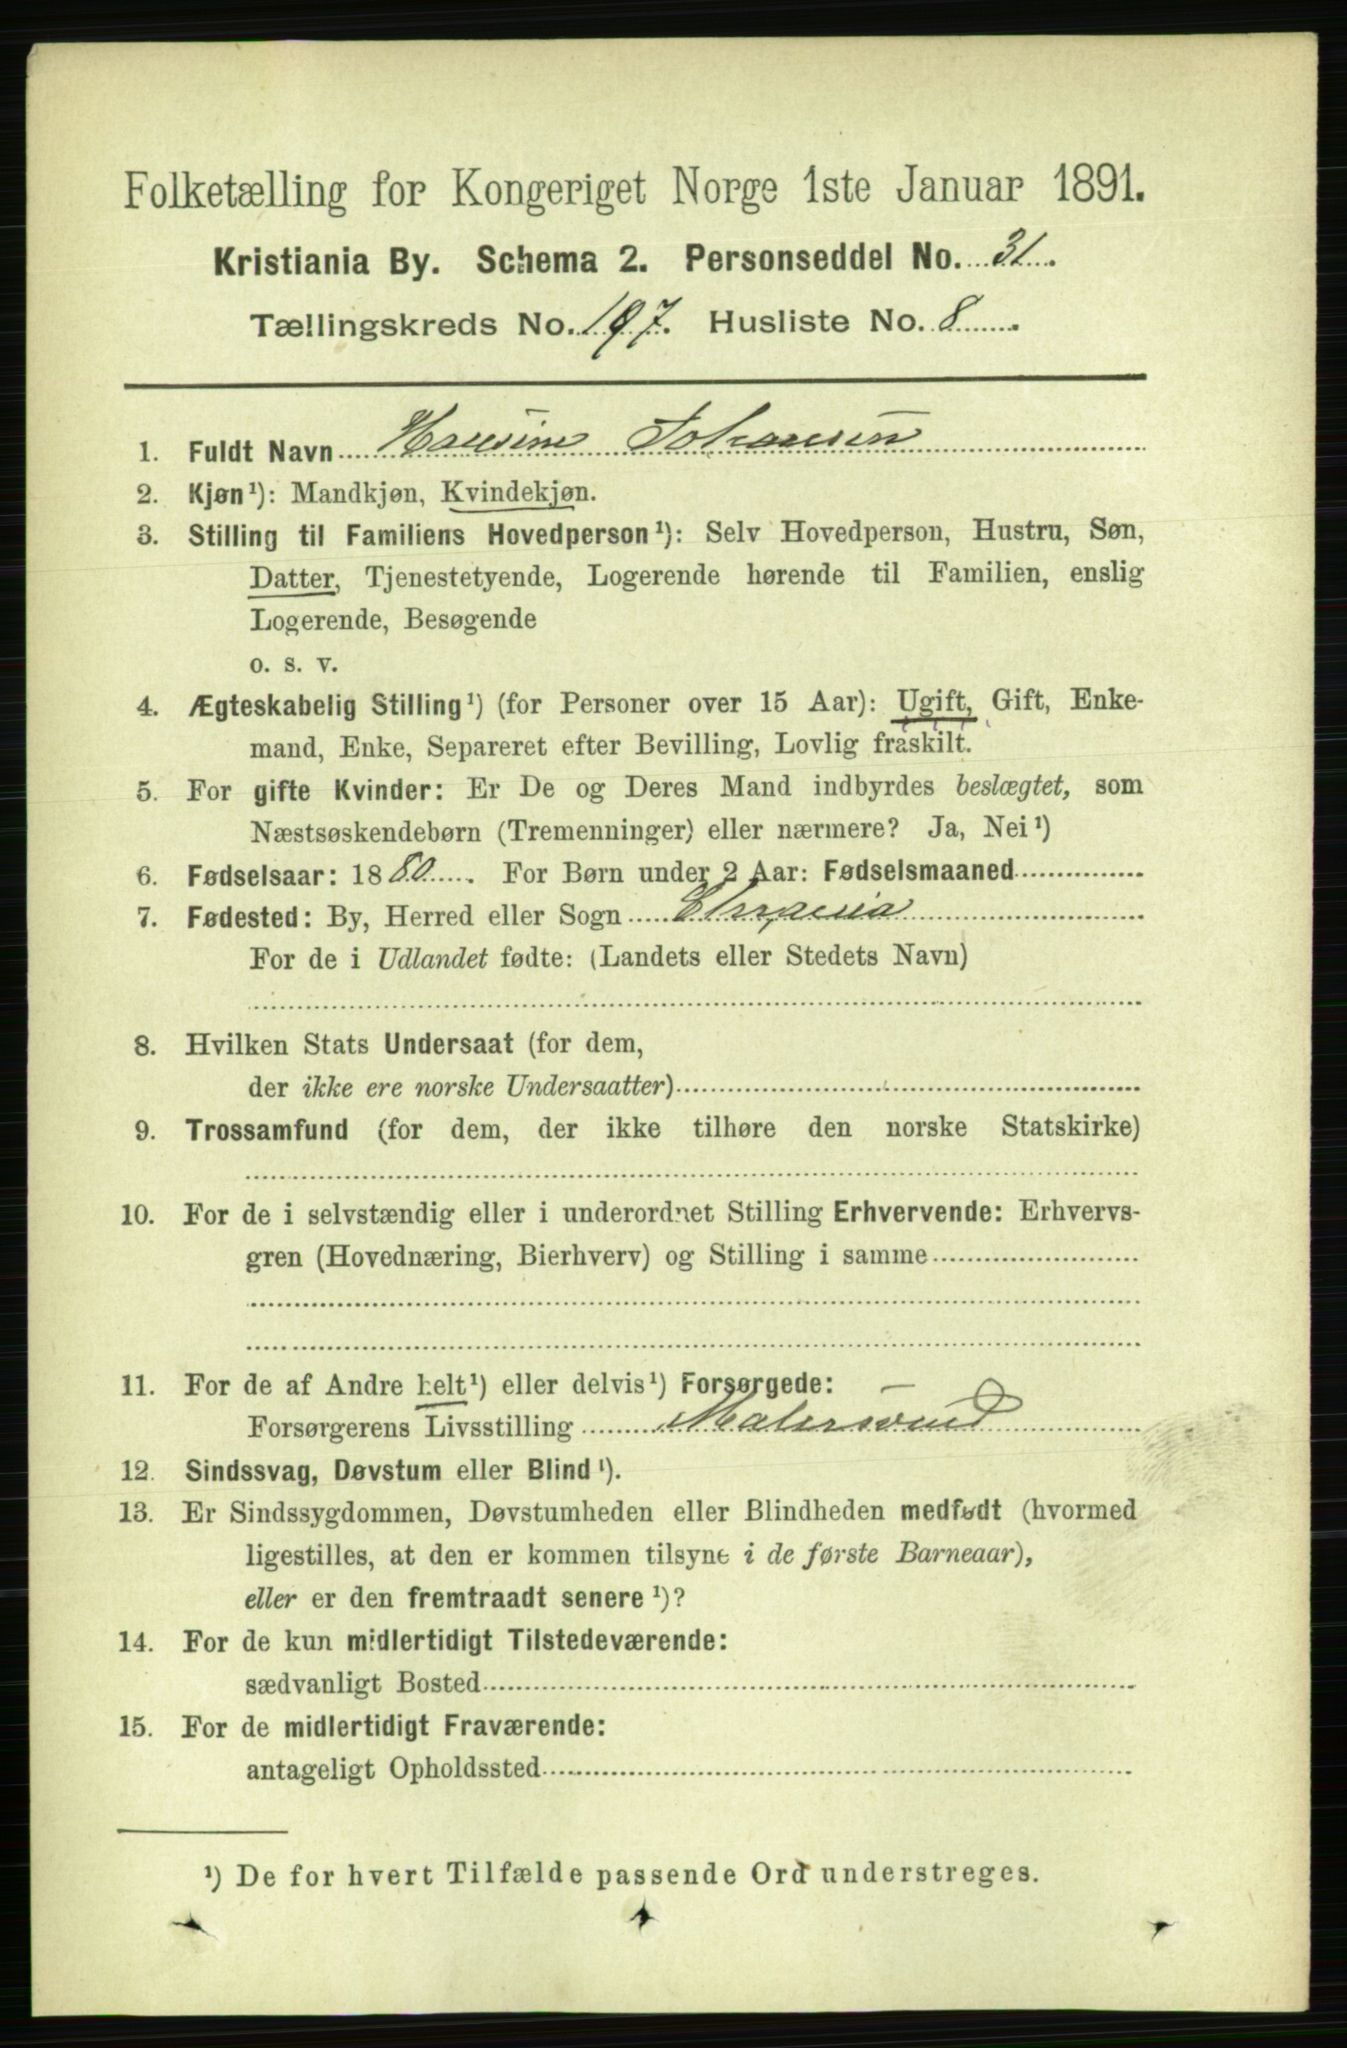 Folketælling for Kongeriget Norge 1ste Januar 1891.
Kristiania By. Schema 2. Personseddel No. 31.
Tællingskreds No. 197. Husliste No. 8
1. Fuldt Navn Hansine Johansen
2. Kjøn¹): Mandkjøn, Kvindekjøn.
3. Stilling til Familiens Hovedperson¹): Selv Hovedperson, Hustru, Søn,
Datter, Tjenestetyende, Logerende hørende til Familien, enslig
Logerende, Besøgende
o. s. v.
4. Ægteskabelig Stilling¹) (for Personer over 15 Aar): Ugift, Gift, Enke-
mand, Enke, Separeret efter Bevilling, Lovlig fraskilt.
5. For gifte Kvinder: Er De og Deres Mand indbyrdes beslægtet, som
Næstsøskendebørn (Tremenninger) eller nærmere? Ja, Nei¹)
6. Fødselsaar: 1880. For Børn under 2 Aar: Fødselsmaaned
7. Fødested: By, Herred eller Sogn
For de i Udlandet fødte: (Landets eller Stedets Navn)
8. Hvilken Stats Undersaat (for dem,
der ikke ere norske Undersaatter)
9. Trossamfund (for dem, der ikke tilhøre den norske Statskirke)
10. For de i selvstændig eller i underordnet Stilling Erhvervende: Erhvervs-
gren (Hovednæring, Bierhverv) og Stilling i samme
11. For de af Andre helt¹) eller delvis¹) Forsørgede:
Forsørgerens Livsstilling Malersvend
12. Sindssvag, Døvstum eller Blind¹).
13. Er Sindssygdommen, Døvstumheden eller Blindheden medfødt (hvormed
ligestilles, at den er kommen tilsyne i de første Barneaar),
eller er den fremtraadt senere¹)?
14. For de kun midlertidigt Tilstedeværende:
sædvanligt Bosted
15. For de midlertidigt Fraværende:
antageligt Opholdssted
¹) De for hvert Tilfælde passende Ord understreges.